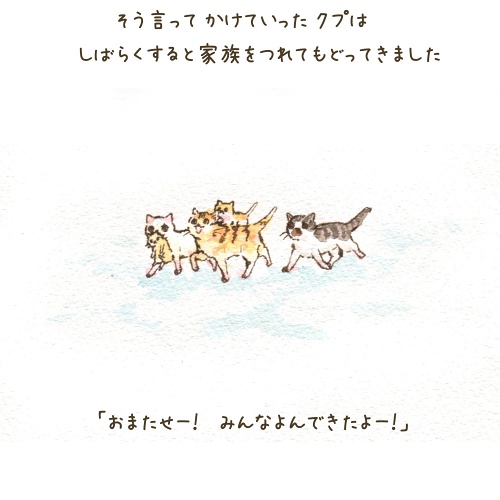 そう言って かけていった クプは
しばらくすると 家族をつれてもどってきました
「おまたせー！ みんなよんできたよー！」